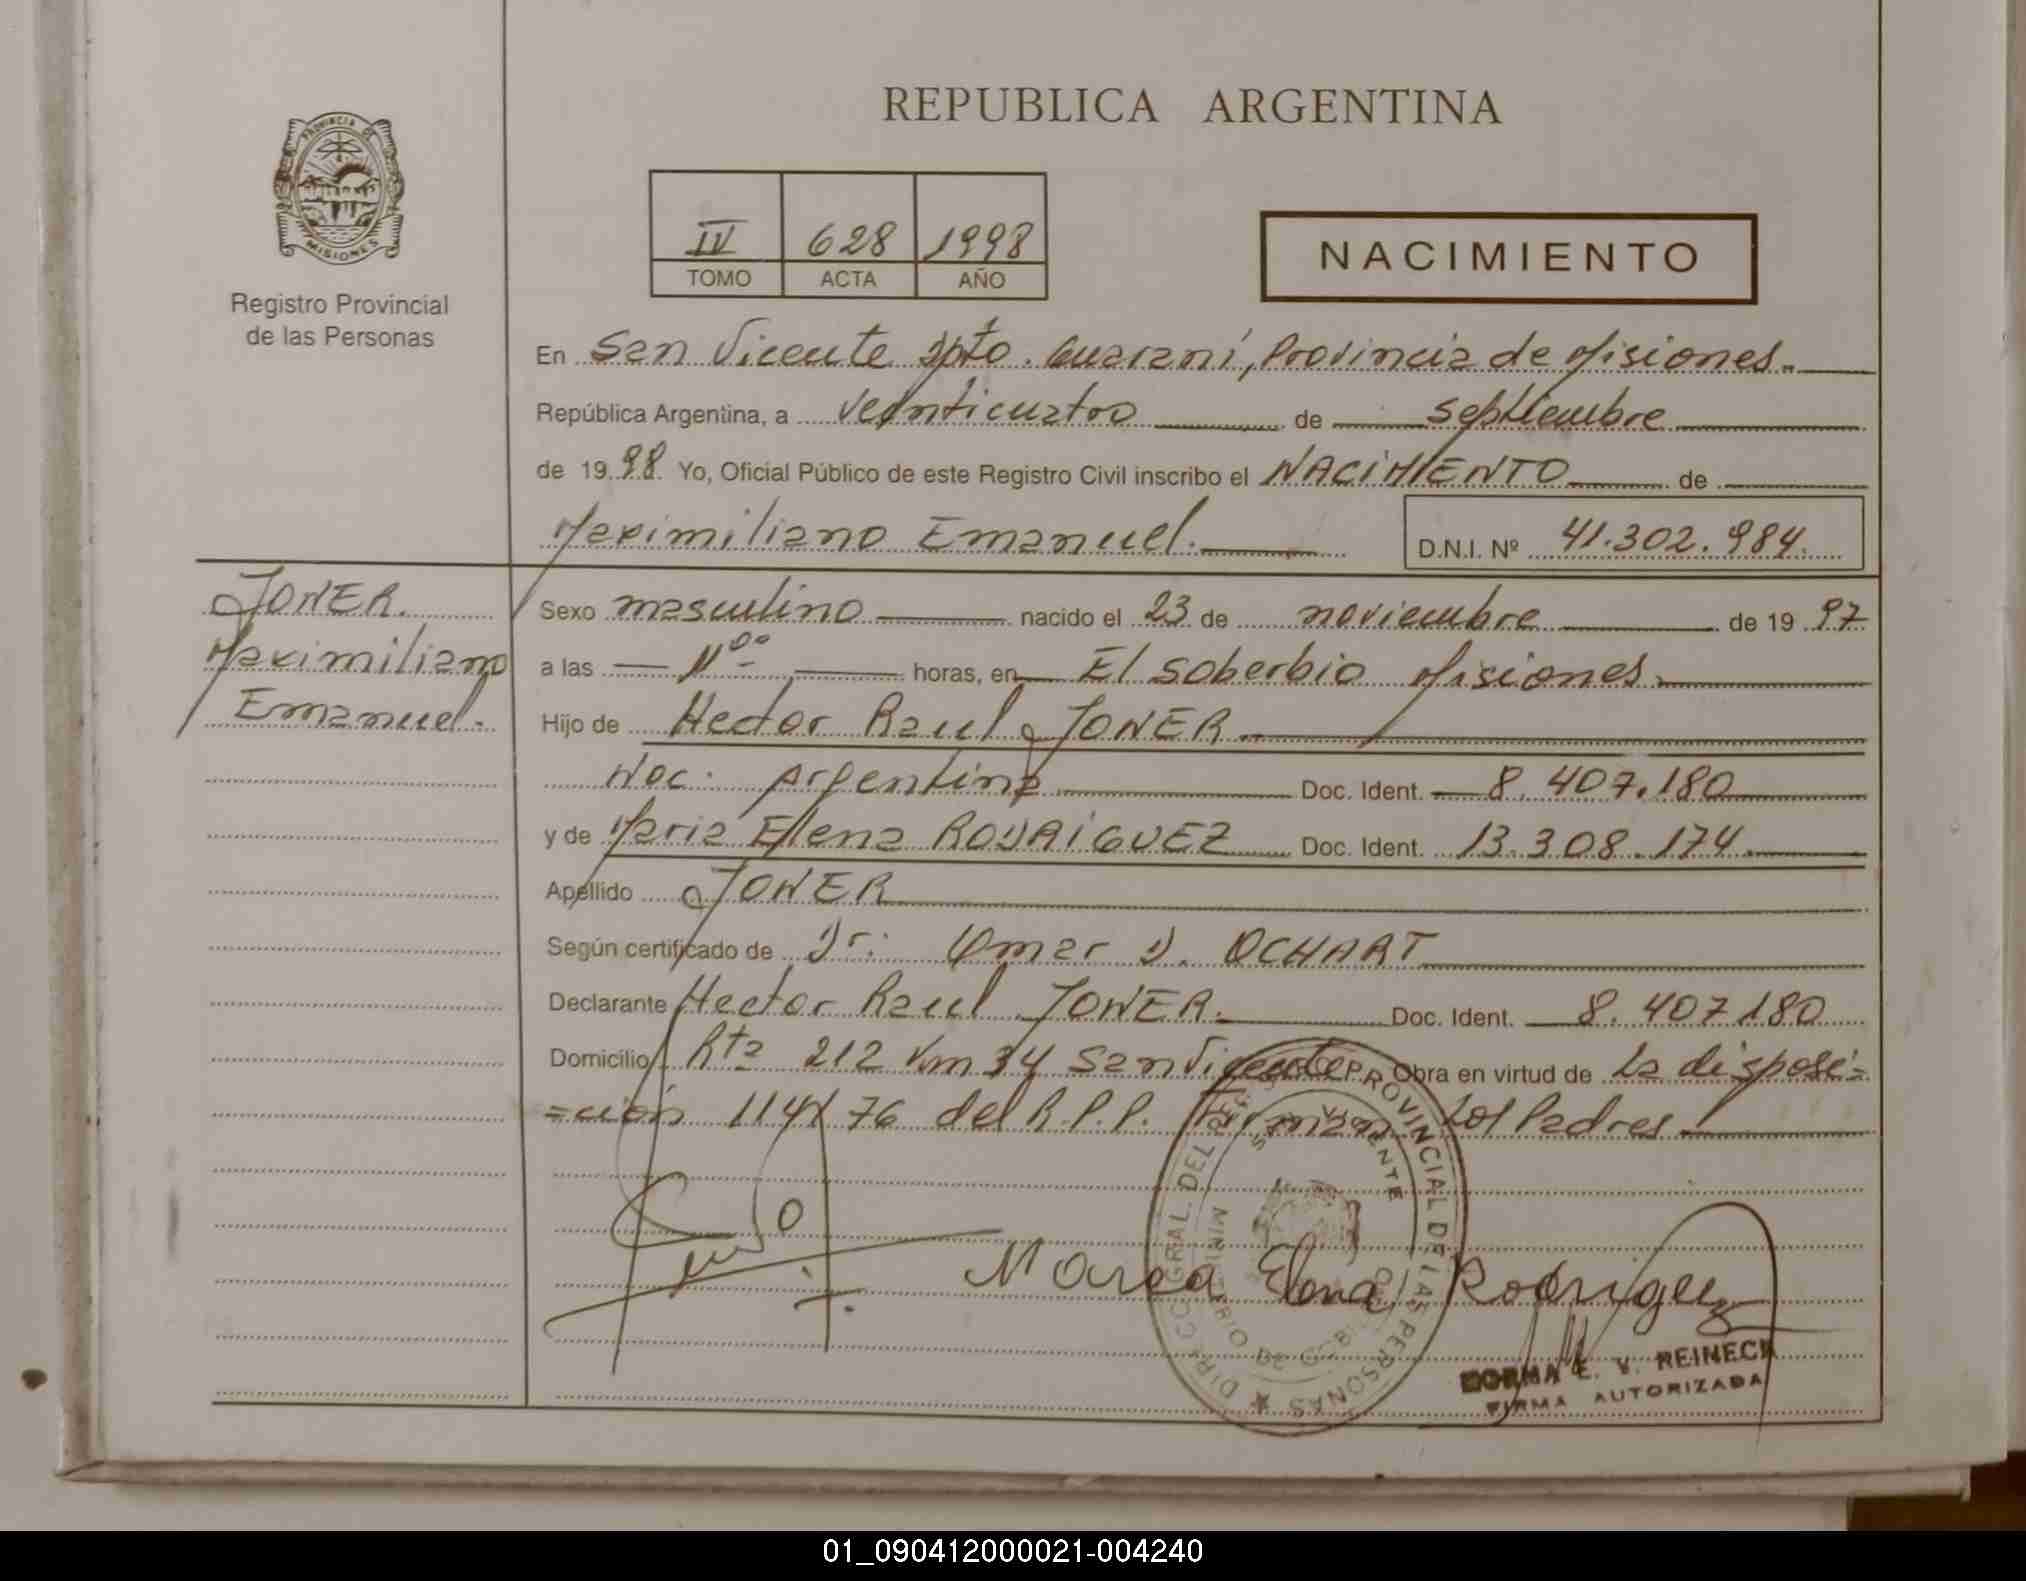 REPUBLICA ARGENTINA
PROVINCIA DE
MISIONES
Registro Provincial
de las Personas
IV 628 1998
TOMO ACTA AÑO
NACIMIENTO
En San Vicente Dpto. Guaraní, Provincia de Misiones.
República Argentina, a veinticuatro de septiembre
de 1998. Yo, Oficial Público de este Registro Civil inscribo el NACIMIENTO de
Maximiliano Emanuel.
D.N.I. Nº 41.302.984.
JONER.
Maximiliano
Emanuel.
Sexo masculino nacido el 23 de noviembre de 1997
a las 11⁰⁰ horas, en El Soberbio Misiones
Hijo de Hector Raul JONER
Nac. Argentina Doc. Ident. 8.407.180
y de Maria Elena RODRIGUEZ Doc. Ident. 13.308.174.
Apellido JONER
Según certificado de Dr: Omar D. OCHART
Declarante Hector Raul JONER. Doc. Ident. 8.407180
Domicilio Rta 212 Km 34 San Vicente Obra en virtud de la disposi=
=ción 114/76 del R.P.P. Firman Los Padres
Maria Elena Rodriguez
DIREC. GRAL. DEL REG. PROVINCIAL DE LAS PERSONAS
SAN VICENTE
MINISTERIO DE GOBIERNO
NORMA E. V. REINECK
FIRMA AUTORIZADA
01_090412000021-004240